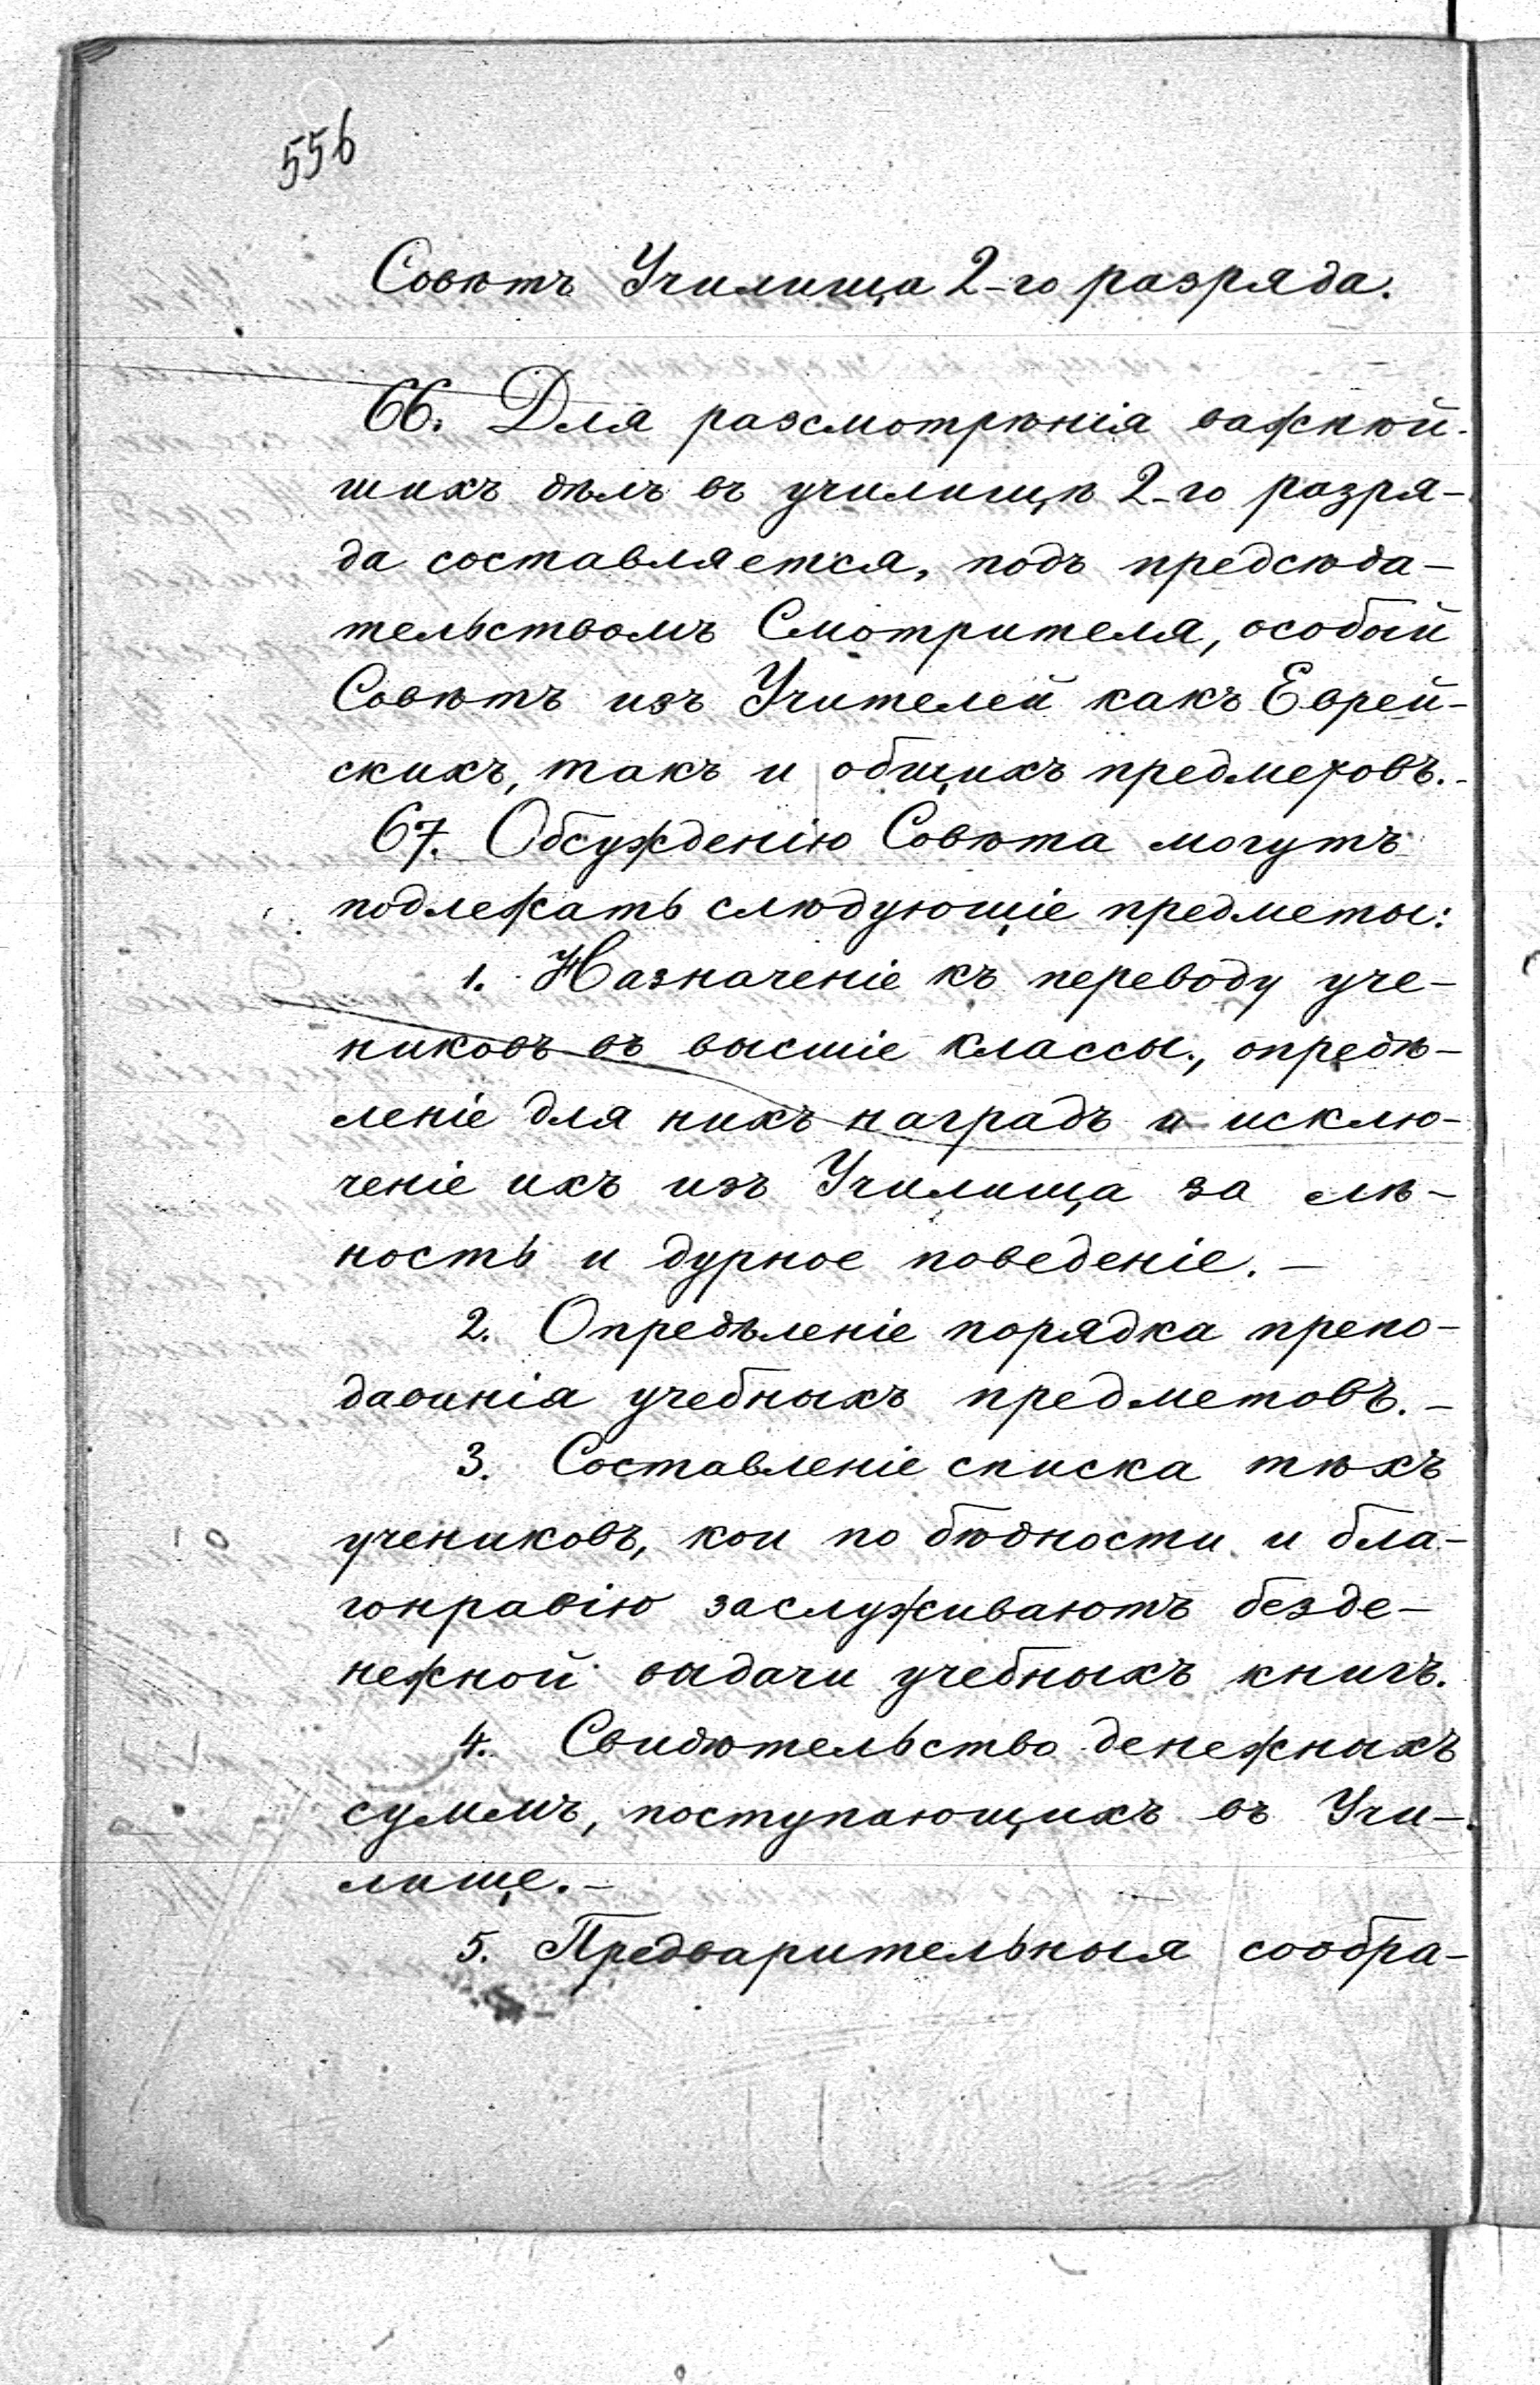 556
Совѣтъ Училища 2-го разряда.
66. Для разсмотрѣнія важнѣй-
шихъ дѣлъ въ училищѣ 2-го разря-
да составляется, подъ предсѣда-
тельствомъ Смотрителя, особый
Совѣтъ изъ Учителей какъ Еврей-
скихъ, такъ и общихъ предметовъ.-
67. Обсужденію Совѣта могутъ
подлежать слѣдующіе предметы:
1. Назначеніе къ переводу уче-
никовъ въ высшіе классы, опредѣ-
леніе для нихъ наградъ и исклю-
ченіе ихъ изъ Училища за лѣ-
ность и дурное поведеніе. -
2. Опредѣленіе порядка препо-
даванія учебныхъ предметовъ. -
3. Составленіе списка тѣхъ
учениковъ, кои по бѣдности и бла-
гонравію заслуживаютъ безде-
нежной выдачи учебныхъ книгъ.
4. Свидѣтельство денежныхъ
суммъ, поступающихъ въ Учи-
лище. -
5. Предварительныя сообра-